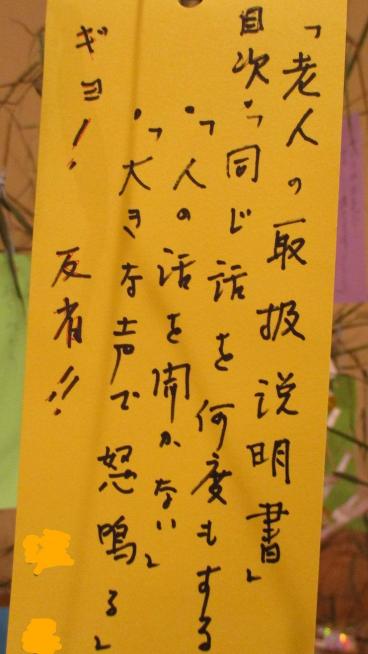 「老人の取扱説明書」
目次・「同じ話を何度もする
・「人の話を聞かない」
・「大きな声で怒鳴る」
ギョ! 反省!!